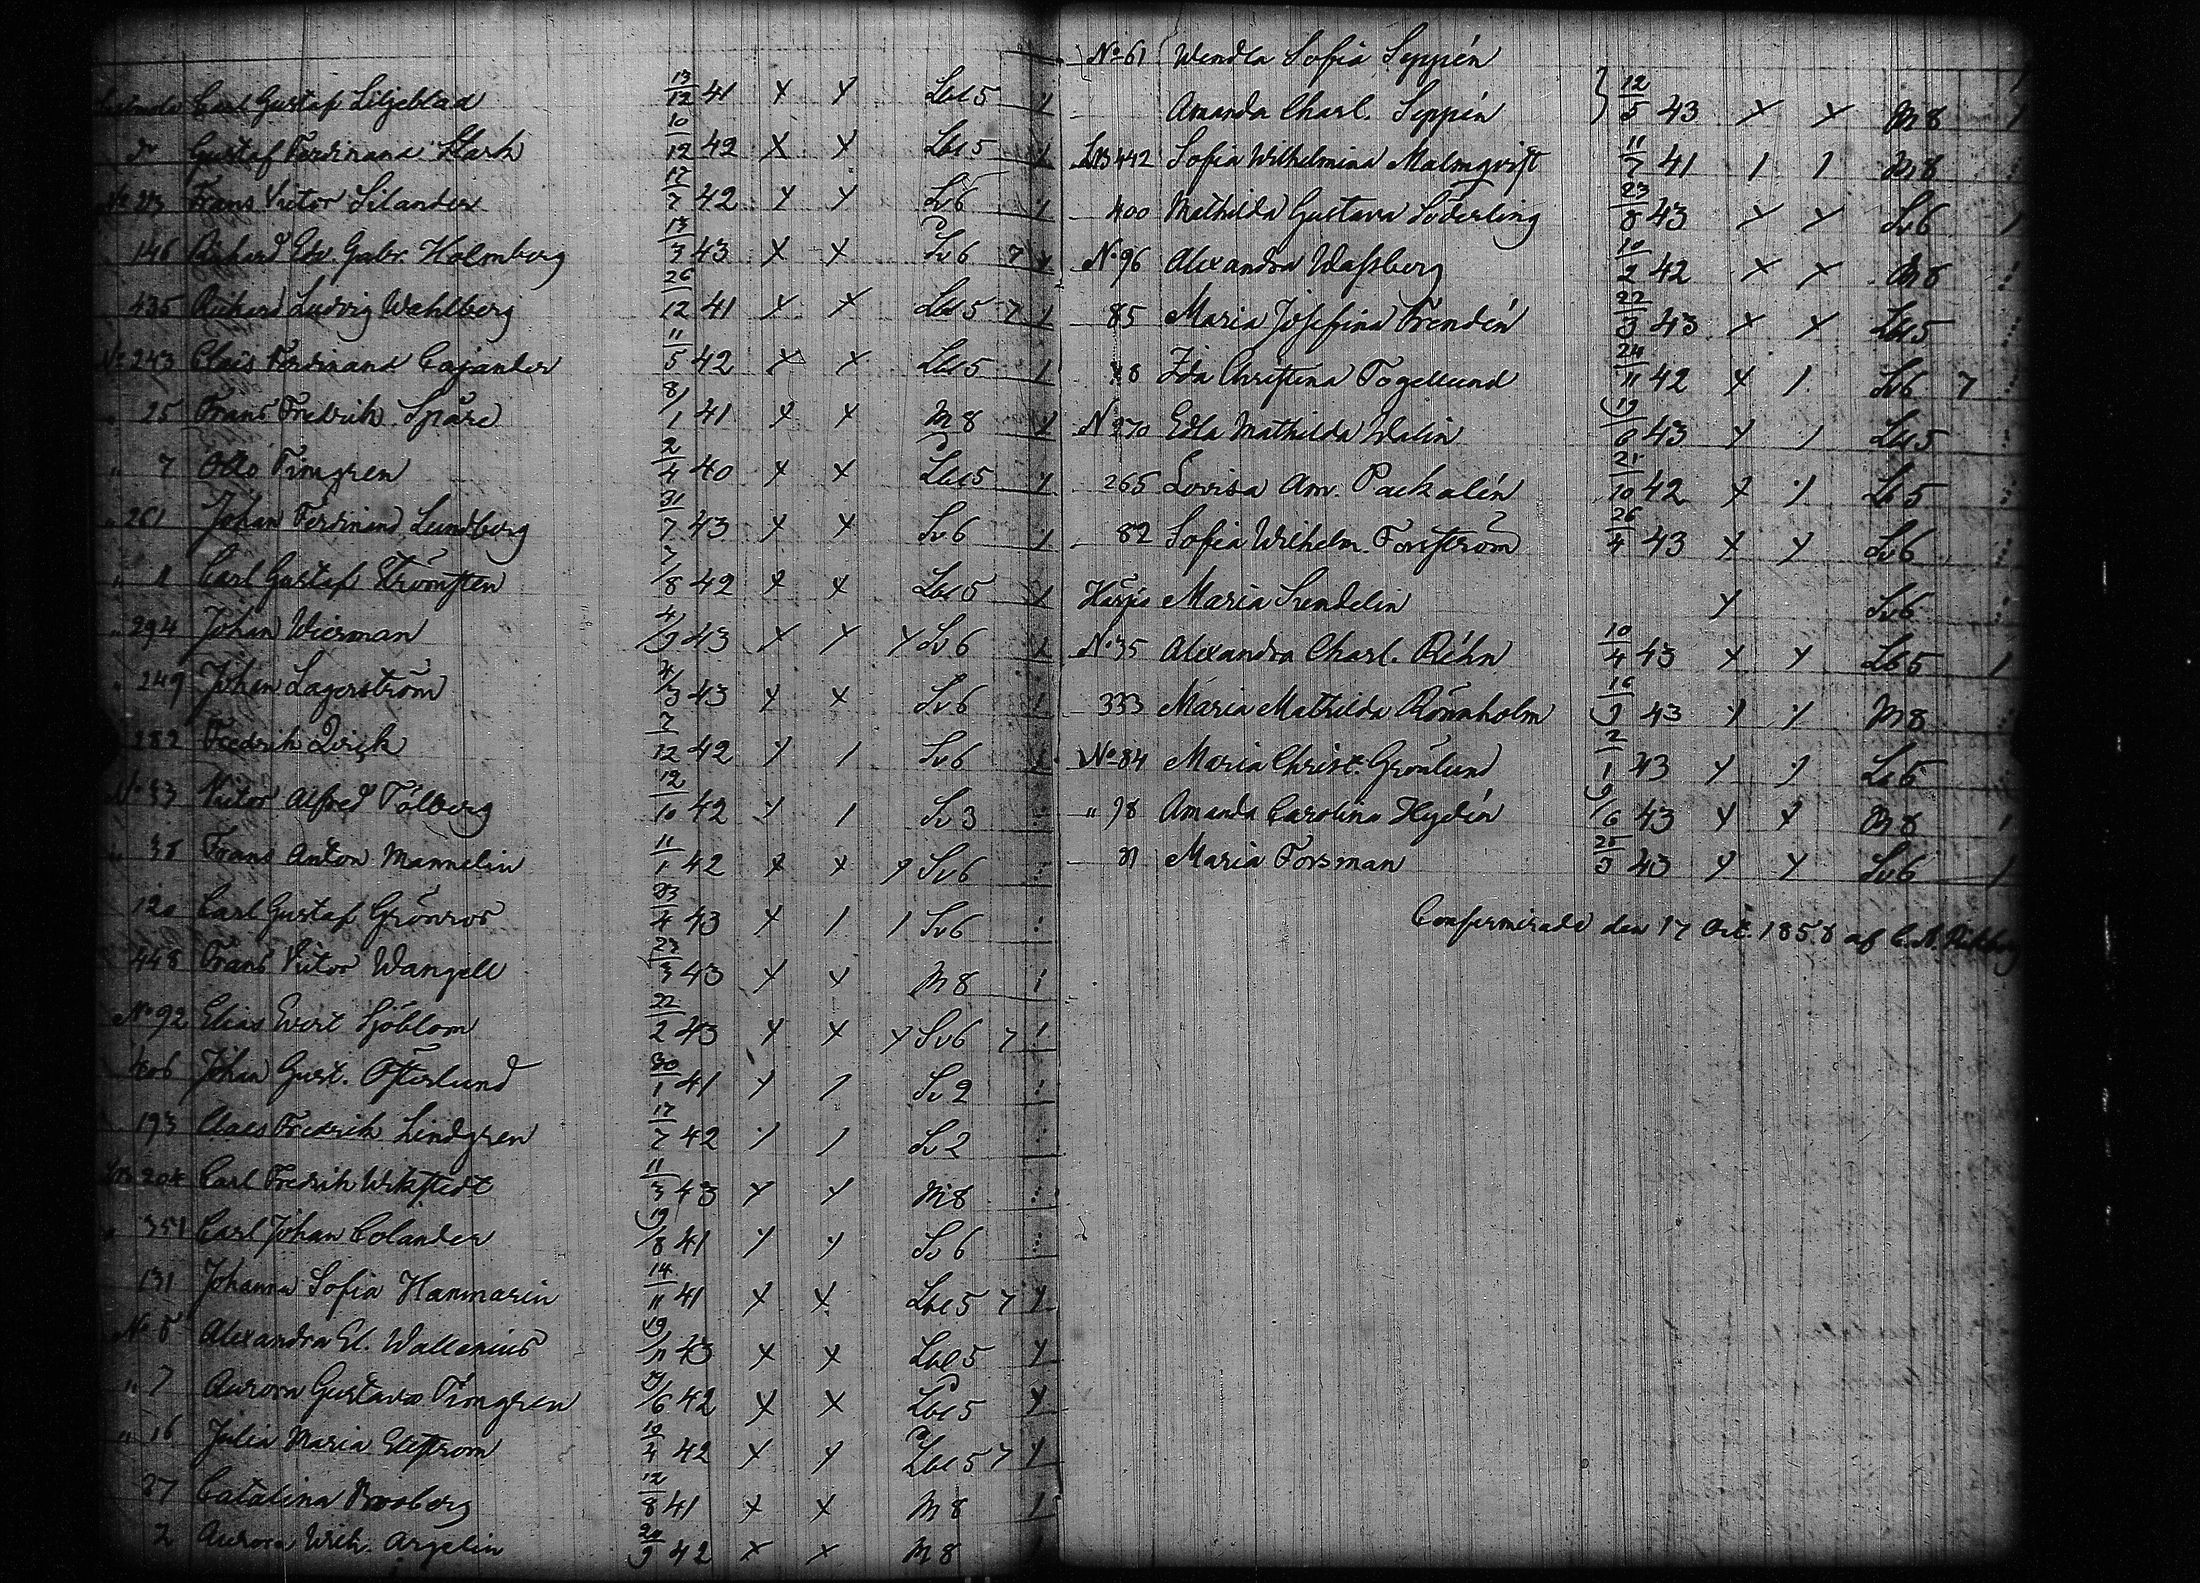 Carl Gustaf Liljeblad 13/12 41 x x Lbl 5
Do Gustaf Ferdinand Stark 10/12 42 x x Lbl 5
No 23 Frans Victor Silander 17/7 42 x x Lv 6
146 Richard Edv. Gabr. Holmberg 13/3 43 x x Sv 6 7
435 Richard Ludvig Wahlberg 26/12 41 x x Lbl 5 7
No 243 Claës Ferdinand Cajander 11/5 42 x x Lbl 5
" 25 Frans Fredrik Spåre 8/1 41 x x M 8
" 7 Otto Timgren 2/4 40 x x Lbl 5
" 261 Johan Ferdinand Lundberg 31/7 43 x x Sv 6
" 1 Carl Gustaf Strömsten 7/8 42 x x Lbl 5
" 294 Johan Wierman 4/9 43 x x x Sv 6
" 249 Johan Lagerström 4/3 43 x x Sv 6
282 Fredrik Qvick 7/12 42 x / Sv 6
No 33 Victor Alfred Tålberg 12/10 42 x / Sv 3
" 38 Frans Anton Mannelin 11/1 42 x x x Sv 6
120 Carl Gustaf Grönros 23/4 43 x / / Sv 6
448 Frans Victor Wangell 23/3 43 x x M 8
No 92 Elias Evert Sjöblom 22/2 43 x x x Sv 6 7
406 Johan Gust. Österlund 30/1 41 x / Sv 2
193 Claes Fredrik Lindgren 17/7 42 / / Sv 2
204 Carl Fredrik Wikstedt 11/3 43 x x M 8
" 351 Carl Johan Colander 19/8 41 x x Sv 6
131 Johanna Sofia Hanmarin 14/11 41 x x Lbl 5 7
No 5 Alexandra El. Wallenius 19/11 43 x x Lbl 5
" 7 Aurora Gustava Timgren 27/6 42 x x Lbl 5
" 16 Julia Maria Ekström 10/4 42 x x Lbl 5 7
37 Catalina Broberg 12/8 41 x x M 8
2 Aurora Wilh. Argelin 24/9 42 x x M 8
No 61 Wendla Sofia Seppén
Amanda Charl. Seppén 12/5 43 x x M 8
LB 442 Sofia Wilhelmina Malmqvist 11/7 41 / / M 8
400 Mathilda Gustava Söderling 23/8 43 x x Sv 6
No 96 Alexandra Wassberg 10/2 42 x x M 8
85 Maria Josefina Frendén 22/3 43 x x Lbl 5
48 Ida Christina Fogellund 24/11 42 x / Sv 6 7
No 270 Edla Mathilda Walin 19/6 43 x / Lbl 5
265 Lovisa Am. Packalén 21/10 42 x / Lb 5
82 Sofia Wilhelm. Forsström 26/4 43 x x Sv 6
Harjis Maria Sundelin x Sv 6
No 35 Alexandra Charl. Réhn 10/4 43 x x Lb 5
333 Maria Mathilda Rönnholm 16/9 43 x x M 8
No 84 Maria Christ. Grönlund 2/1 43 x x
" 98 Amanda Carolina Hydén 9/6 43 x x M 8
81 Maria Forsman 25/3 43 x x Sv 6
Confirmerade den 17 Oct. 1858 af C. A.